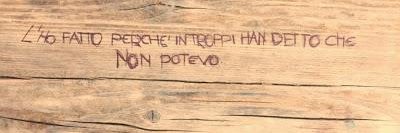 L'HO FATTO PERCHE' IN TROPPI HAN DETTO CHE
NON POTEVO.